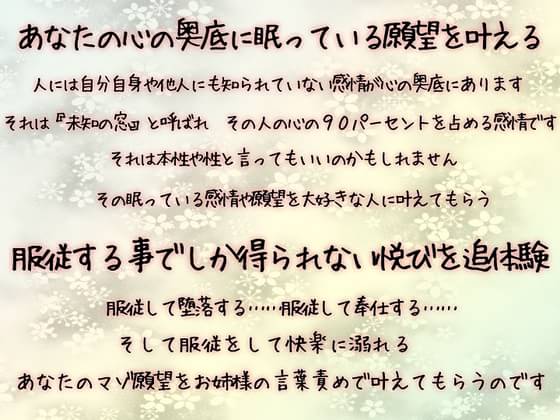 あなたの心の奥底に眠っている願望を叶える
人には自分自身や他人にも知られていない感情が心の奥底にあります
それは『未知の窓』と呼ばれ その人の心の90パーセントを占める感情です
それは本性や性と言ってもいいのかもしれません
その眠っている感情や願望を大好きな人に叶えてもらう
服従する事でしか得られない悦びを追体験
服従して堕落する……服従して奉仕する……
そして服従をして快楽に溺れる
あなたのマゾ願望をお姉様の言葉責めで叶えてもらうのです